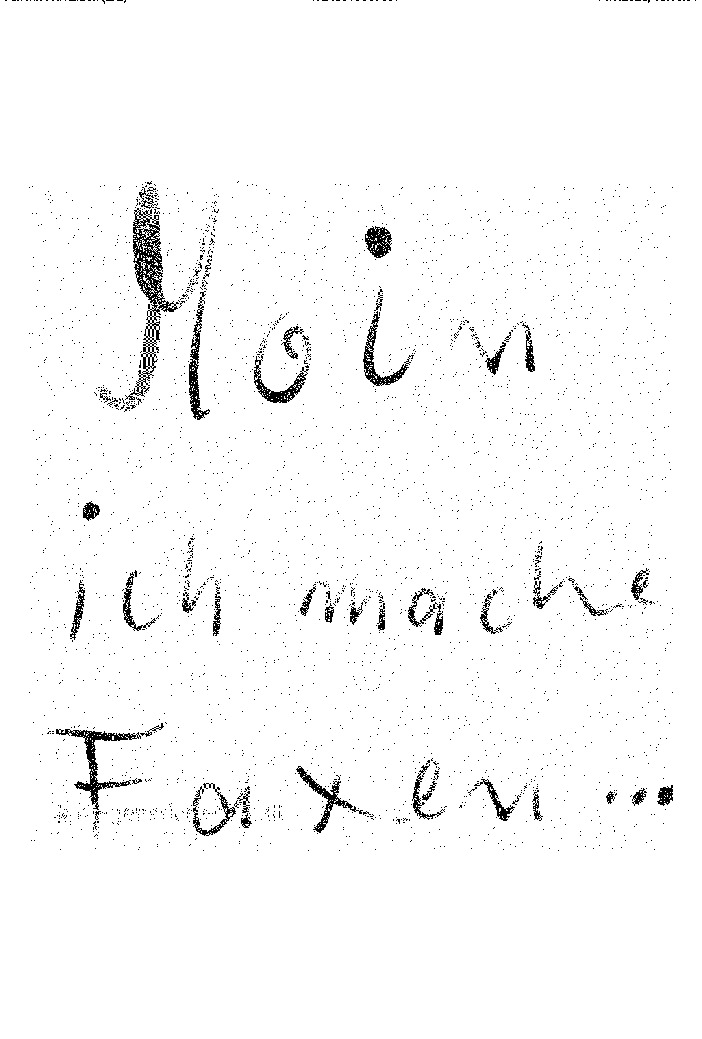 Moin
ich mache
Faxen...